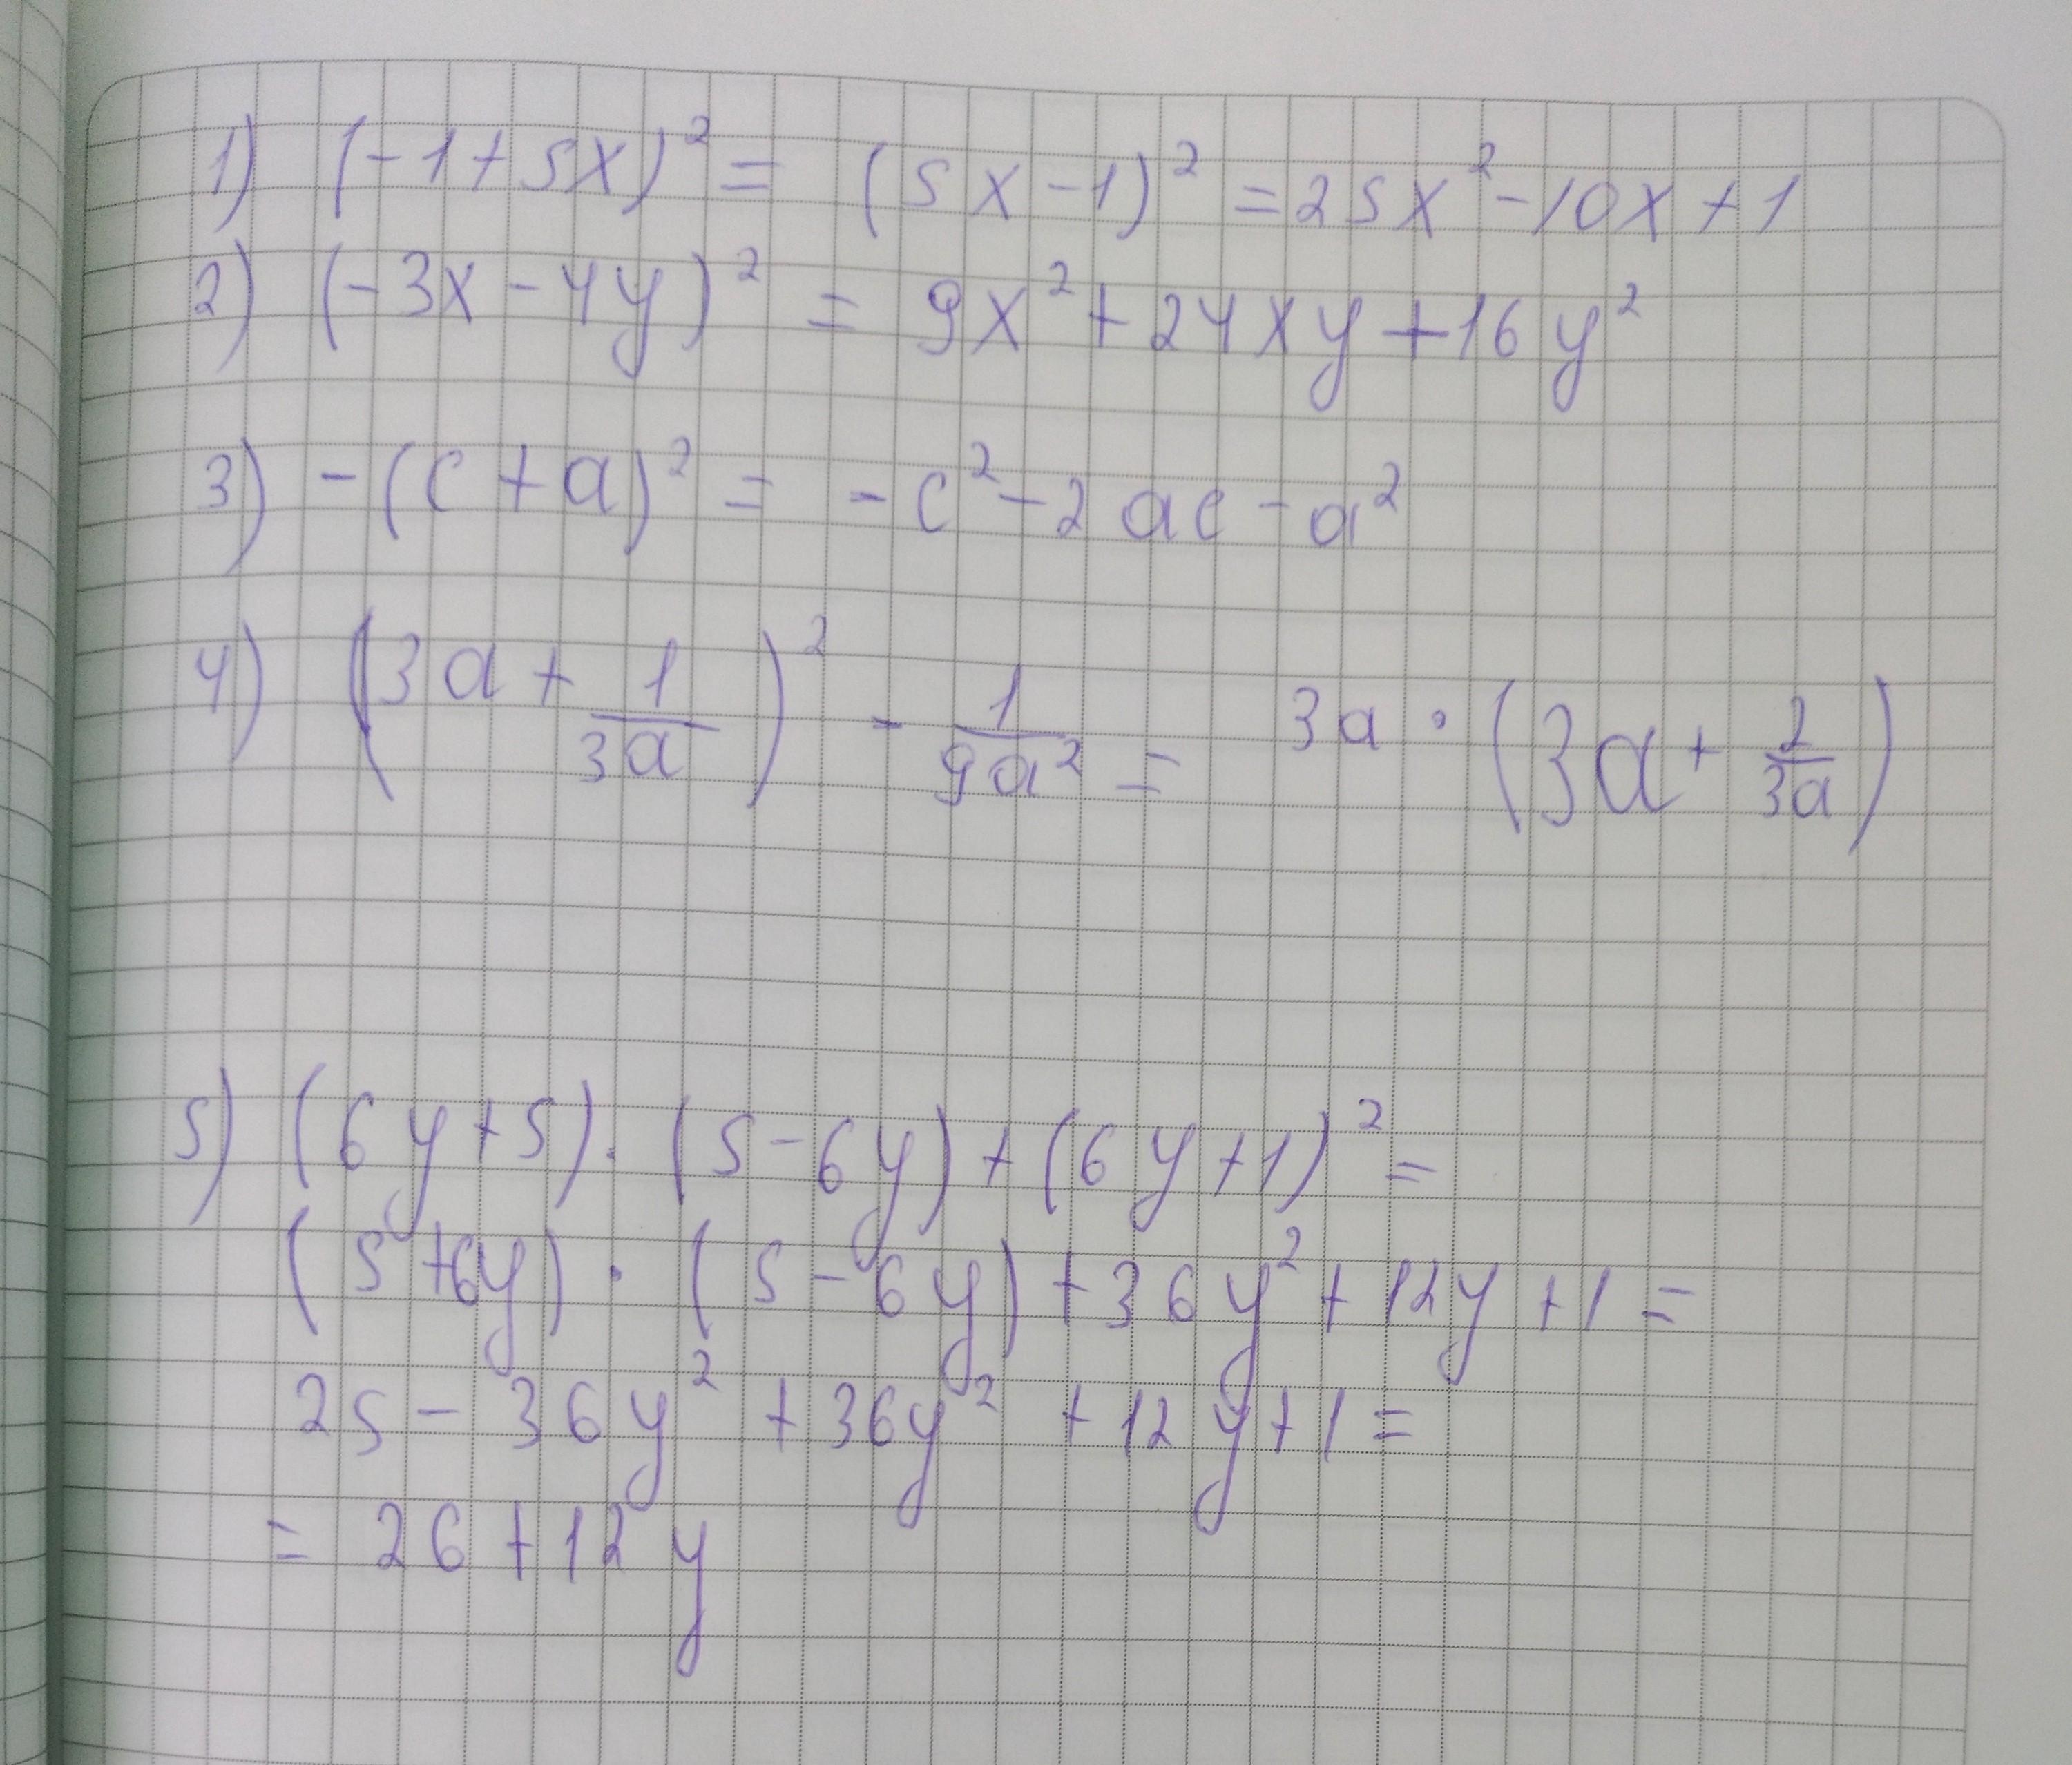 1) (-1+5x)² = (5x-1)² = 25x² - 10x + 1
2) (-3x-4y)² = 9x² + 24xy + 16y²
3) -(c+a)² = -c² - 2ac - a²
4) (3a + 1/3a)² - 1/9a² = 3a · (3a + 2/3a)
5) (6y+5) · (5-6y) + (6y+1)² =
(5+6y) · (5-6y) + 36y² + 12y + 1 =
25 - 36y² + 36y² + 12y + 1 =
= 26 + 12y